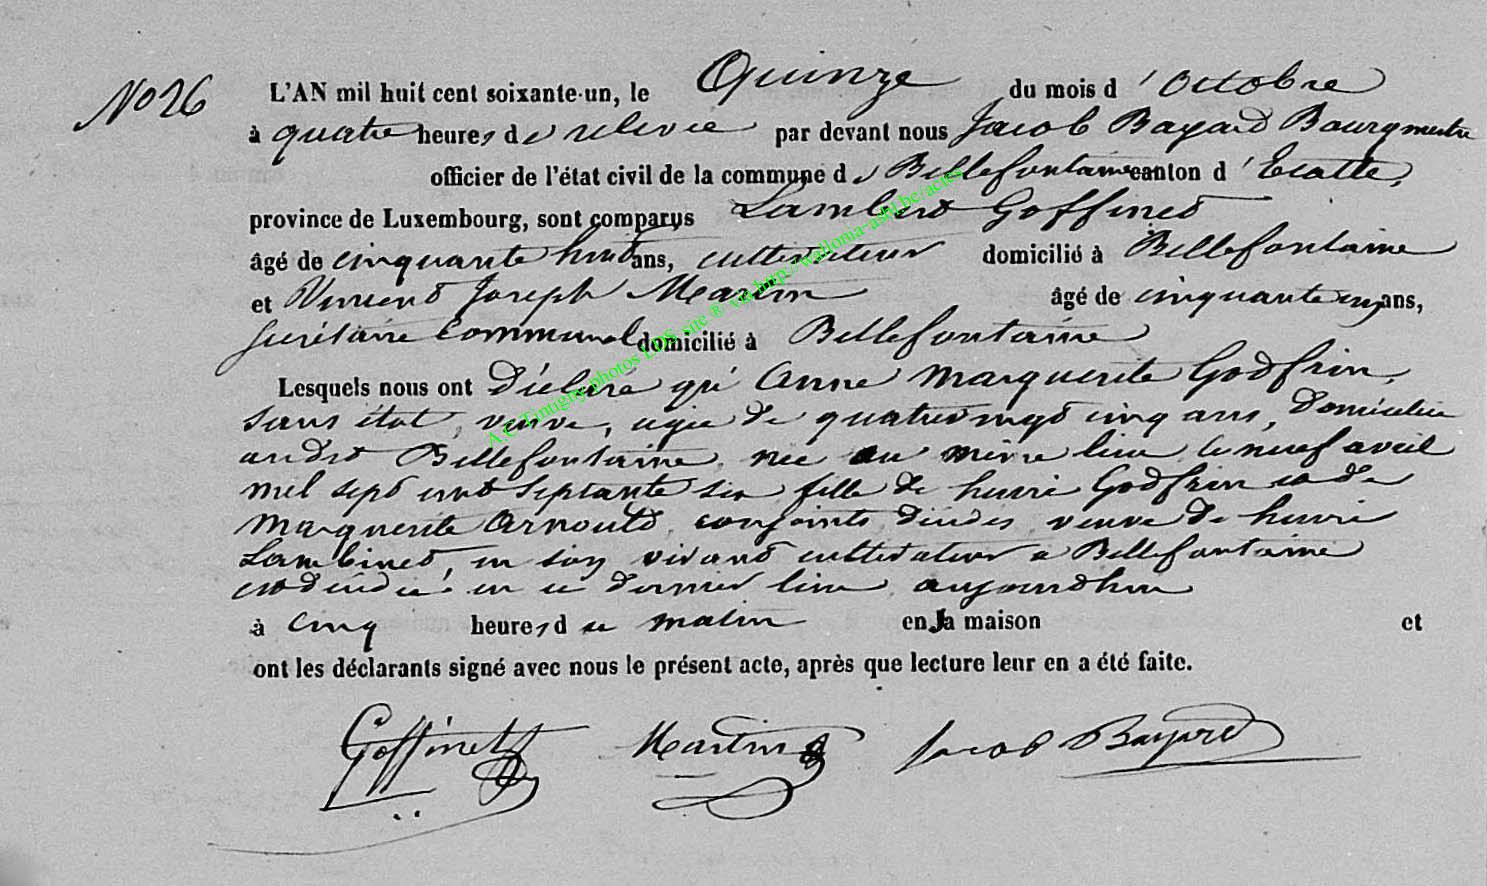 No 26
L'AN mil huit cent soixante-un, le Quinze du mois d'Octobre
à quatre heures de relevée par devant nous Jacob Bayard Bourgmestre
officier de l'état civil de la commune de Bellefontaine canton d'Etalle,
province de Luxembourg, sont comparus Lambert Goffinet
âgé de cinquante huit ans, cultivateur domicilié à Bellefontaine
et Vincent Joseph Martin âgé de cinquante cinq ans,
secrétaire communal domicilié à Bellefontaine
Lesquels nous ont Déclaré qu'Anne Marguerite Godfrin,
sans état, veuve, agée de quatrevingt cinq ans, domiciliée
audit Bellefontaine, née au même lieu le neuf avril
mil sept cent septante six fille de henri Godfrin et de
Marguerite Arnould, conjoints décédés, veuve de henri
Lambinet, en son vivant cultivateur a Bellefontaine
est décédée en ce dernier lieu aujourdhui
à cinq heures du matin en sa maison et
ont les déclarants signé avec nous le présent acte, après que lecture leur en a été faite.
Goffinet Martin Jacob Bayard
A.C Tintigny photos LDS site ® via http://walloma-asbl.be/actes